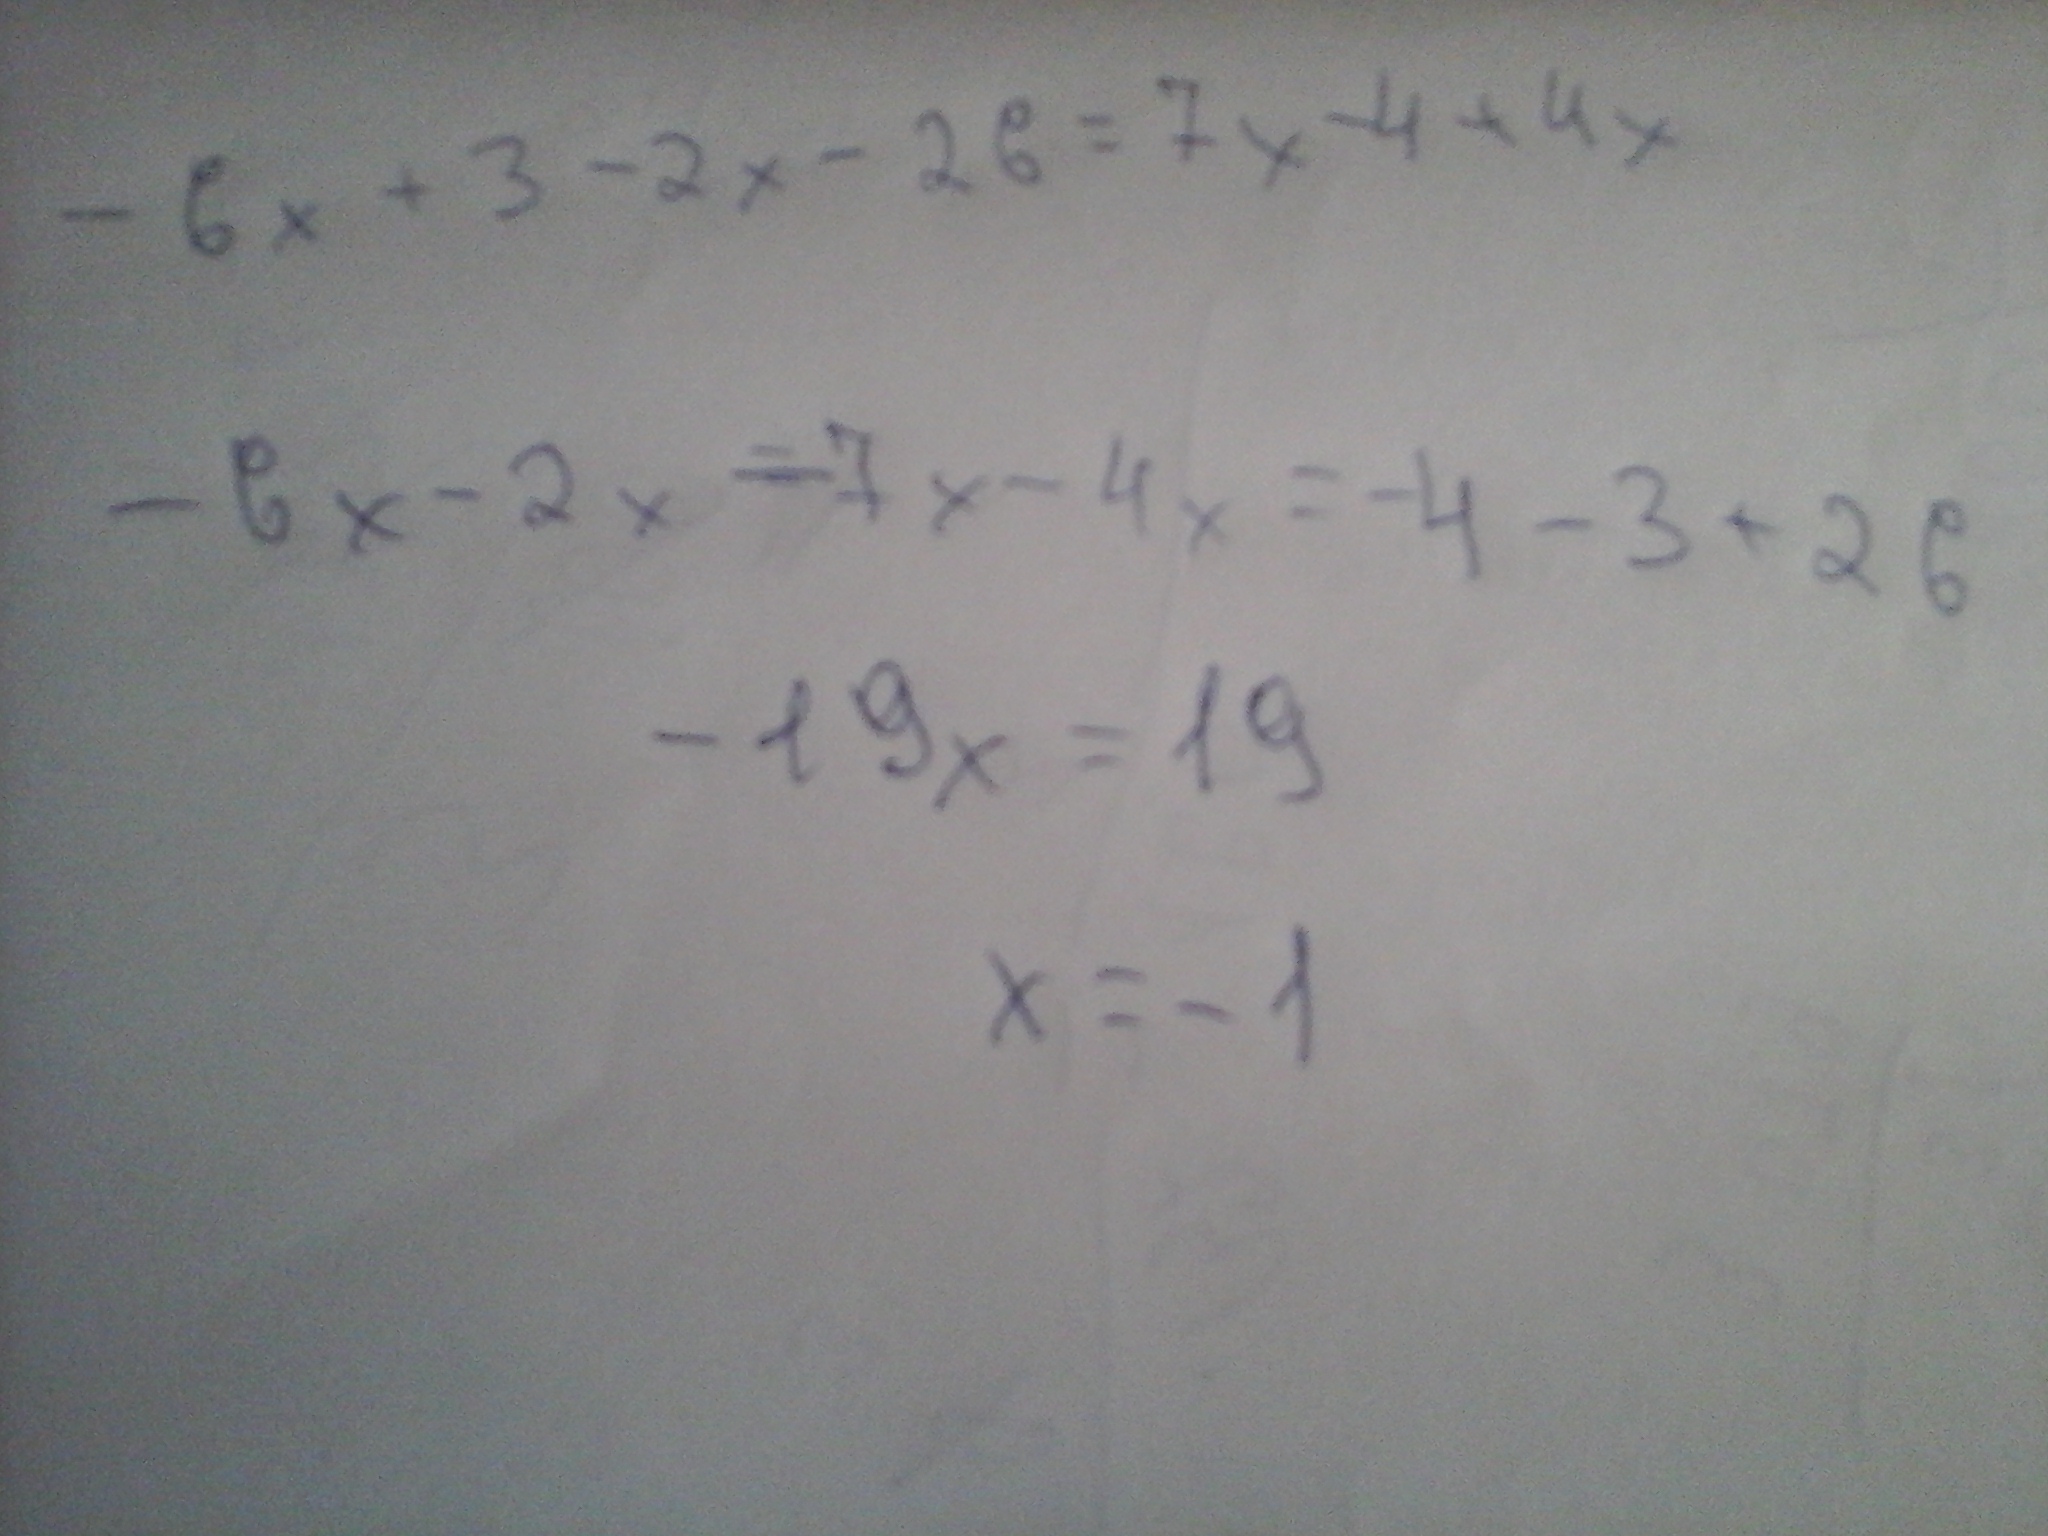 - 6x + 3 - 2x - 26 = 7x - 4 + 4x
- 6x - 2x - 7x - 4x = -4 - 3 + 26
- 19x = 19
x = - 1